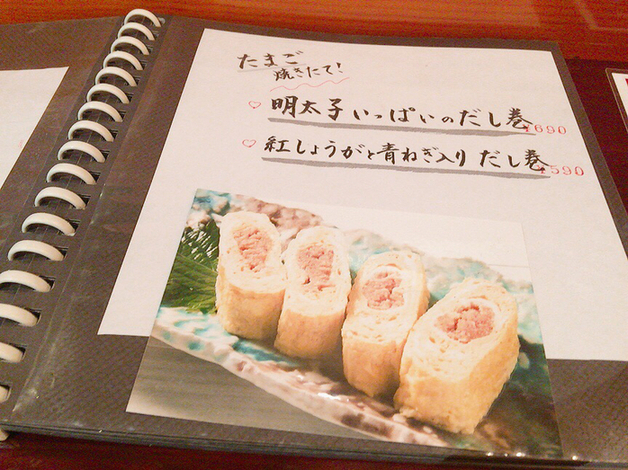 たまご
焼きたて！
♡ 明太子いっぱいのだし巻 ¥690
♡ 紅しょうがと青ねぎ入りだし巻 ¥590